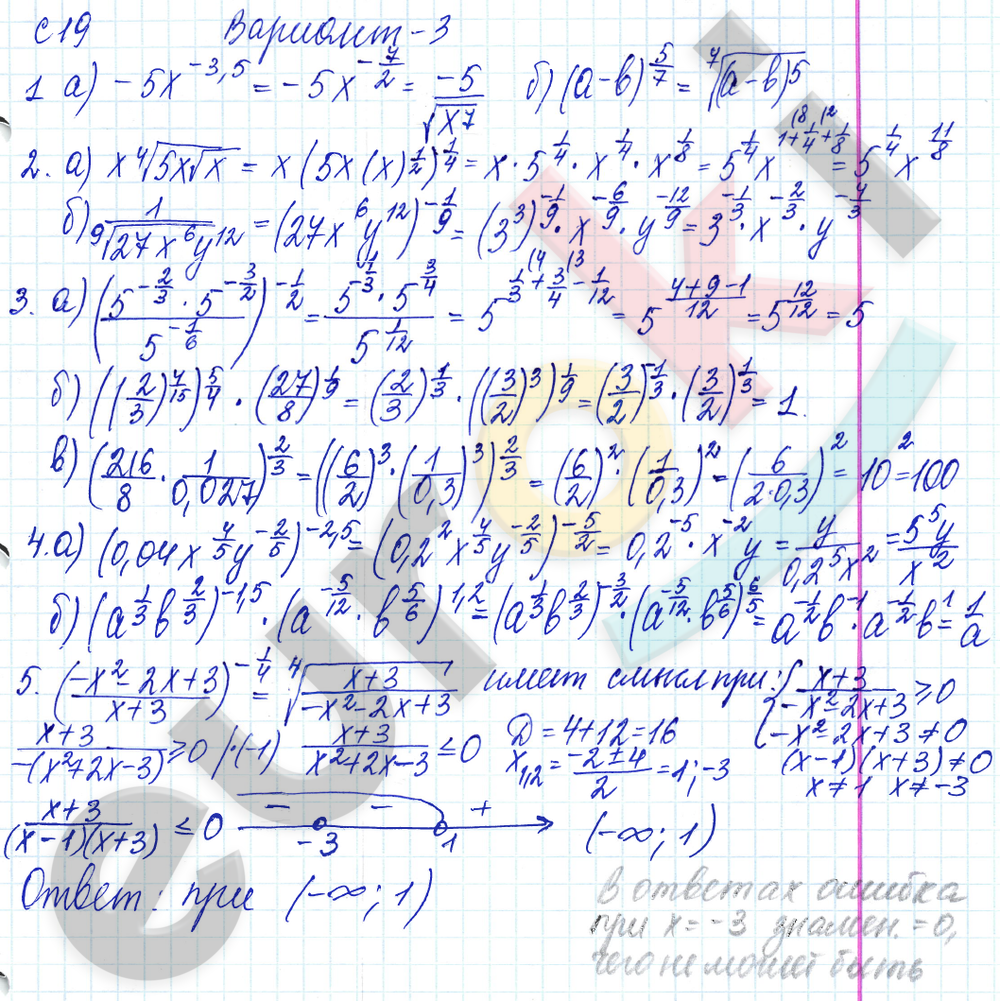 С19 Вариант-3
1 а) -5x^{-3,5} = -5x^{-\frac{7}{2}} = \frac{-5}{\sqrt{x^7}} б) (a-b)^{\frac{5}{7}} = \sqrt[7]{(a-b)^5}
2. а) x\sqrt[4]{5x\sqrt{x}} = x(5x(x)^{\frac{1}{2}})^{\frac{1}{4}} = x·5^{\frac{1}{4}}·x^{\frac{1}{4}}·x^{\frac{1}{8}} = 5^{\frac{1}{4}}x^{1+\frac{1}{4}+\frac{1}{8}} = 5^{\frac{1}{4}}x^{\frac{11}{8}}
б) \frac{1}{\sqrt[9]{27x^6y^{12}}} = (27x^6y^{12})^{-\frac{1}{9}} = (3^3)^{-\frac{1}{9}}·x^{-\frac{6}{9}}·y^{-\frac{12}{9}} = 3^{-\frac{1}{3}}·x^{-\frac{2}{3}}·y^{-\frac{4}{3}}
3. а) (\frac{5^{-\frac{2}{3}}·5^{-\frac{3}{2}}}{5^{-\frac{1}{6}}})^{-\frac{1}{2}} = \frac{5^{\frac{1}{3}}·5^{\frac{3}{4}}}{5^{\frac{1}{12}}} = 5^{\frac{1}{3}+\frac{3}{4}-\frac{1}{12}} = 5^{\frac{4+9-1}{12}} = 5^{\frac{12}{12}} = 5
б) ((\frac{2}{3})^{\frac{4}{15}})^{\frac{5}{4}}·(\frac{27}{8})^{\frac{1}{9}} = (\frac{2}{3})^{\frac{1}{3}}·((\frac{3}{2})^3)^{\frac{1}{9}} = (\frac{3}{2})^{-\frac{1}{3}}·(\frac{3}{2})^{\frac{1}{3}} = 1.
в) (\frac{216}{8}·\frac{1}{0,027})^{\frac{2}{3}} = ((\frac{6}{2})^3·(\frac{1}{0,3})^3)^{\frac{2}{3}} = (\frac{6}{2})^2·(\frac{1}{0,3})^2 = (\frac{6}{2·0,3})^2 = 10^2 = 100
4. а) (0,04x^{\frac{4}{5}}y^{-\frac{2}{5}})^{-2,5} = (0,2^2x^{\frac{4}{5}}y^{-\frac{2}{5}})^{-\frac{5}{2}} = 0,2^{-5}·x^{-2}y = \frac{y}{0,2^5x^2} = \frac{5^5y}{x^2}
б) (a^{\frac{1}{3}}b^{\frac{2}{3}})^{-1,5}·(a^{-\frac{5}{12}}·b^{\frac{5}{6}})^{1,2} = (a^{\frac{1}{3}}b^{\frac{2}{3}})^{-\frac{3}{2}}·(a^{-\frac{5}{12}}·b^{\frac{5}{6}})^{\frac{6}{5}} = a^{-\frac{1}{2}}b^{-1}·a^{-\frac{1}{2}}b^1 = \frac{1}{a}
5. (\frac{-x^2-2x+3}{x+3})^{-\frac{1}{4}} = \sqrt[4]{\frac{x+3}{-x^2-2x+3}} имеет смысл при: { \frac{x+3}{-x^2-2x+3} ≥ 0
-x^2-2x+3 ≠ 0
\frac{x+3}{-(x^2+2x-3)} ≥ 0 |·(-1) \frac{x+3}{x^2+2x-3} ≤ 0 Д = 4+12 = 16
x_{1,2} = \frac{-2±4}{2} = 1; -3
(x-1)(x+3) ≠ 0
x ≠ 1 x ≠ -3
\frac{x+3}{(x-1)(x+3)} ≤ 0 - - + -3 1 (-∞; 1)
Ответ: при (-∞; 1)
в ответах ошибка
при x = -3 знамен. = 0,
чего не может быть
euroki